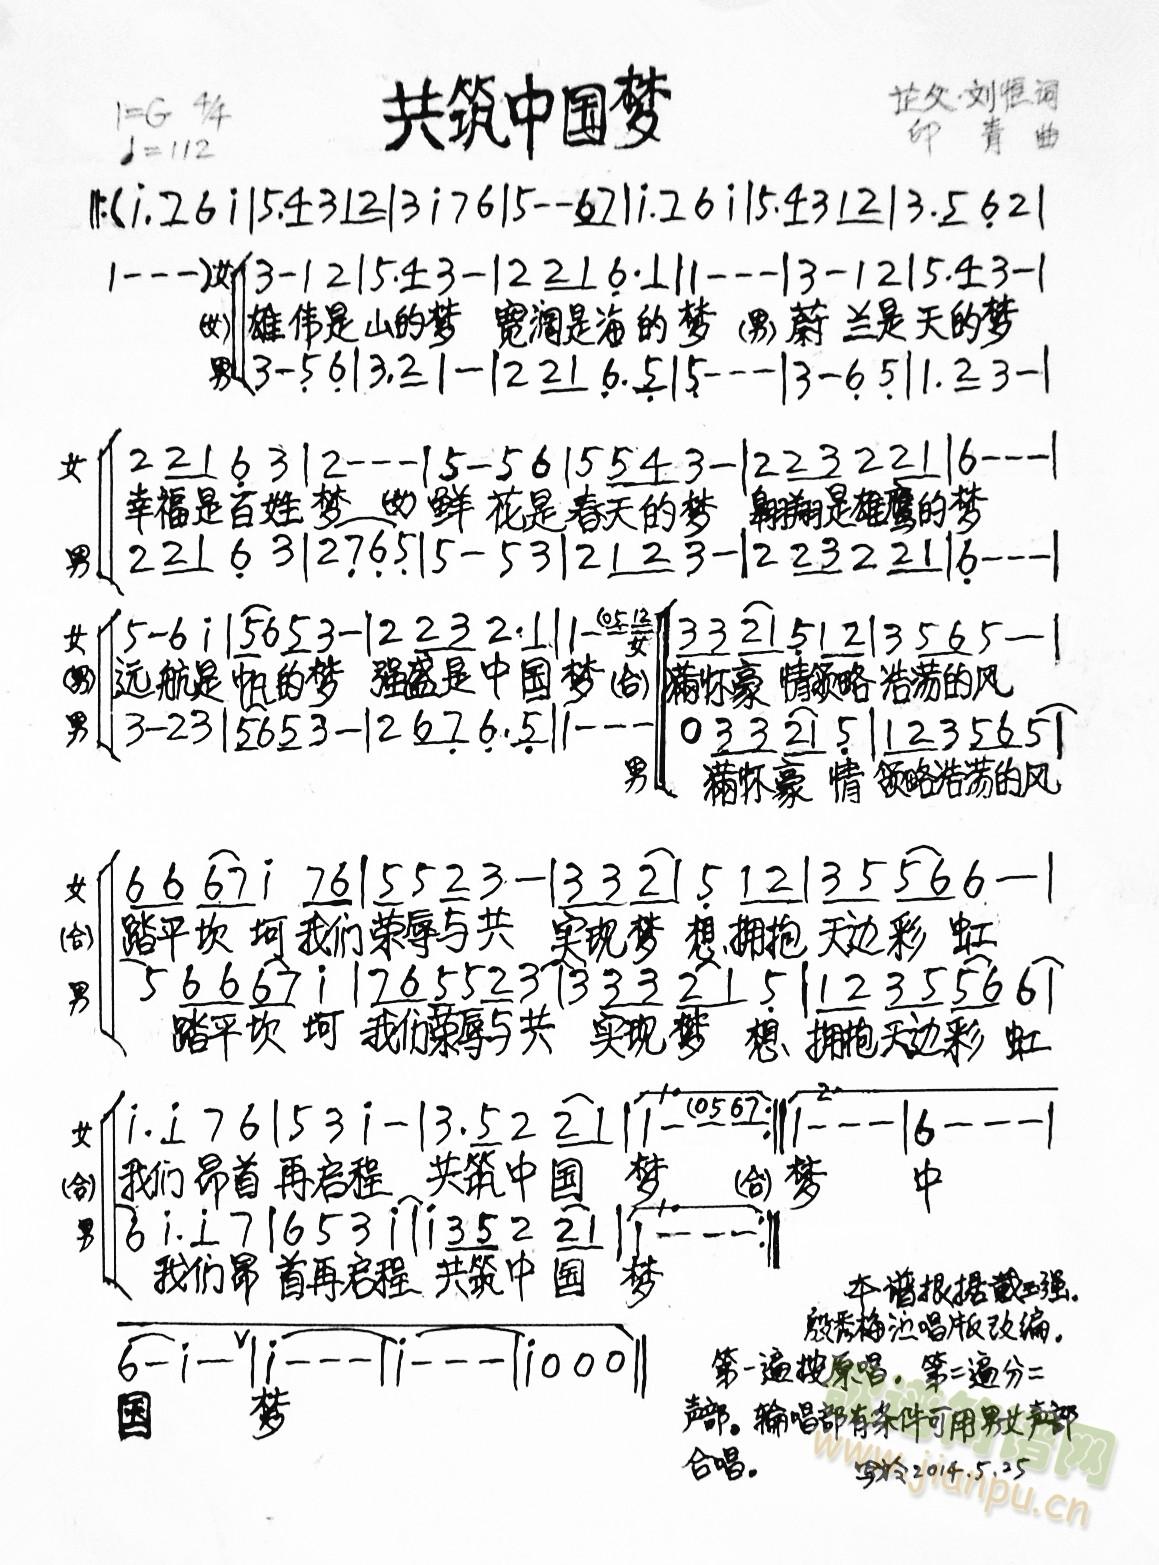 共筑中国梦
1=G 4/4
♩=112
芷父·刘恒词
印青曲
‖:(i.7 6 i|5.4 3 1 2|3 i 7 6|5 - - 6 7|i.7 6 i|5.4 3 1 2|3.5 6 2|
1 - - -)女 3 - 1 2|5.4 3 -|2 2 1 6.1|1 - - -|3 - 1 2|5.4 3 -|
(女) 雄伟是山的梦 宽阔是海的梦 (男) 蔚兰是天的梦
男 3 - 5 6|3.2 1 -|2 2 1 6.5|5 - - -|3 - 6 5|1.2 3 -|
女 2 2 1 6 3|2 - - -|5 - 5 6|5 5 4 3 -|2 2 3 2 2 1|6 - - -|
幸福是百姓梦 (女) 鲜花是春天的梦 翱翔是雄鹰的梦
男 2 2 1 6 3|2 7 6 5|5 - 5 3|2 1 2 3 -|2 2 3 2 2 1|6 - - -|
女 5 - 6 i|5 6 5 3 -|2 2 3 2.1|1 - (0 5 1 2 女 3 3 2 1 5 1 2|3 5 6 5 - -|
(男) 远航是帆的梦 强盛是中国梦 (合) 满怀豪情领略浩荡的风
男 3 - 2 3|5 6 5 3 -|2 6 7 6.5|1 - - - 0 3 3 2 1 5|1 2 3 5 6 5|
男 满怀豪情领略浩荡的风
女 6 6 6 7 i 7 6|5 5 2 3 - -|3 3 2 1 5 1 2|3 5 5 6 6 - -|
(合) 踏平坎坷我们荣辱与共 实现梦想拥抱天边彩虹
男 5 6 6 6 7 i|7 6 5 5 2 3|3 3 3 2 1 5|1 2 3 5 5 6 6|
踏平坎坷我们荣辱与共 实现梦想拥抱天边彩虹
女 i.i 7 6|5 3 i -|3.5 2 2 1|1. 1 - (0 5 6 7 :‖2. 1 - - -|6 - - -|
(合) 我们昂首再启程 共筑中国梦 (合) 梦中
男 6 i.i 7|6 5 3 i|i 3 5 2 2 1|1. 1 - - - :‖
我们昂首再启程 共筑中国梦
6 - i - V|i - - -|i - - -|i 0 0 0‖
国梦
本谱根据戴玉强.
殷秀梅泣唱版改编.
第一遍按原唱.第二遍分二
声部。轮唱部有条件可用男女声部
合唱。
2014.5.25
歌谱简谱网
www.jianpu.cn